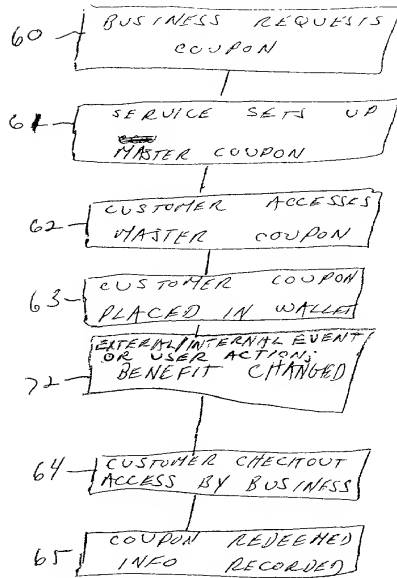 60
BUSINESS REQUESTS
COUPON
61
SERVICE SETS UP
MASTER COUPON
62
CUSTOMER ACCESSES
MASTER COUPON
63
CUSTOMER COUPON
PLACED IN WALLET
72
EXTERAL/INTERNAL EVENT
OR USER ACTION;
BENEFIT CHANGED
64
CUSTOMER CHECKOUT
ACCESS BY BUSINESS
65
COUPON REDEEMED
INFO RECORDED